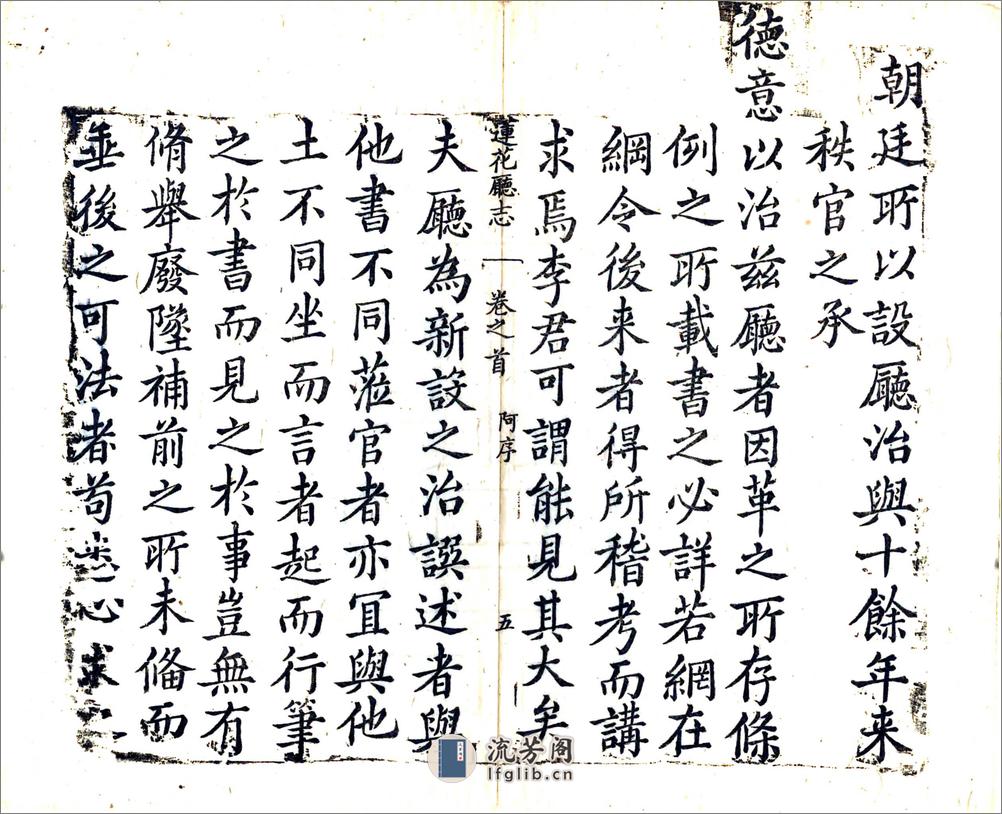 朝廷所以設廳治與十餘年来
秩官之承
德意以治兹廳者因革之所存條
例之所載書之必詳若網在
綱令後来者得所稽考而講
求焉李君可謂能見其大矣
蓮花廳志 卷之首 阿序 五
夫廳為新設之治譔述者與
他書不同蒞官者亦冝與他
土不同坐而言者起而行筆
之於書而見之於事豈無有
脩舉廢墜補前之所未俻而
垂後之可法者苟悉心求之
流芳阁
lfglib.cn